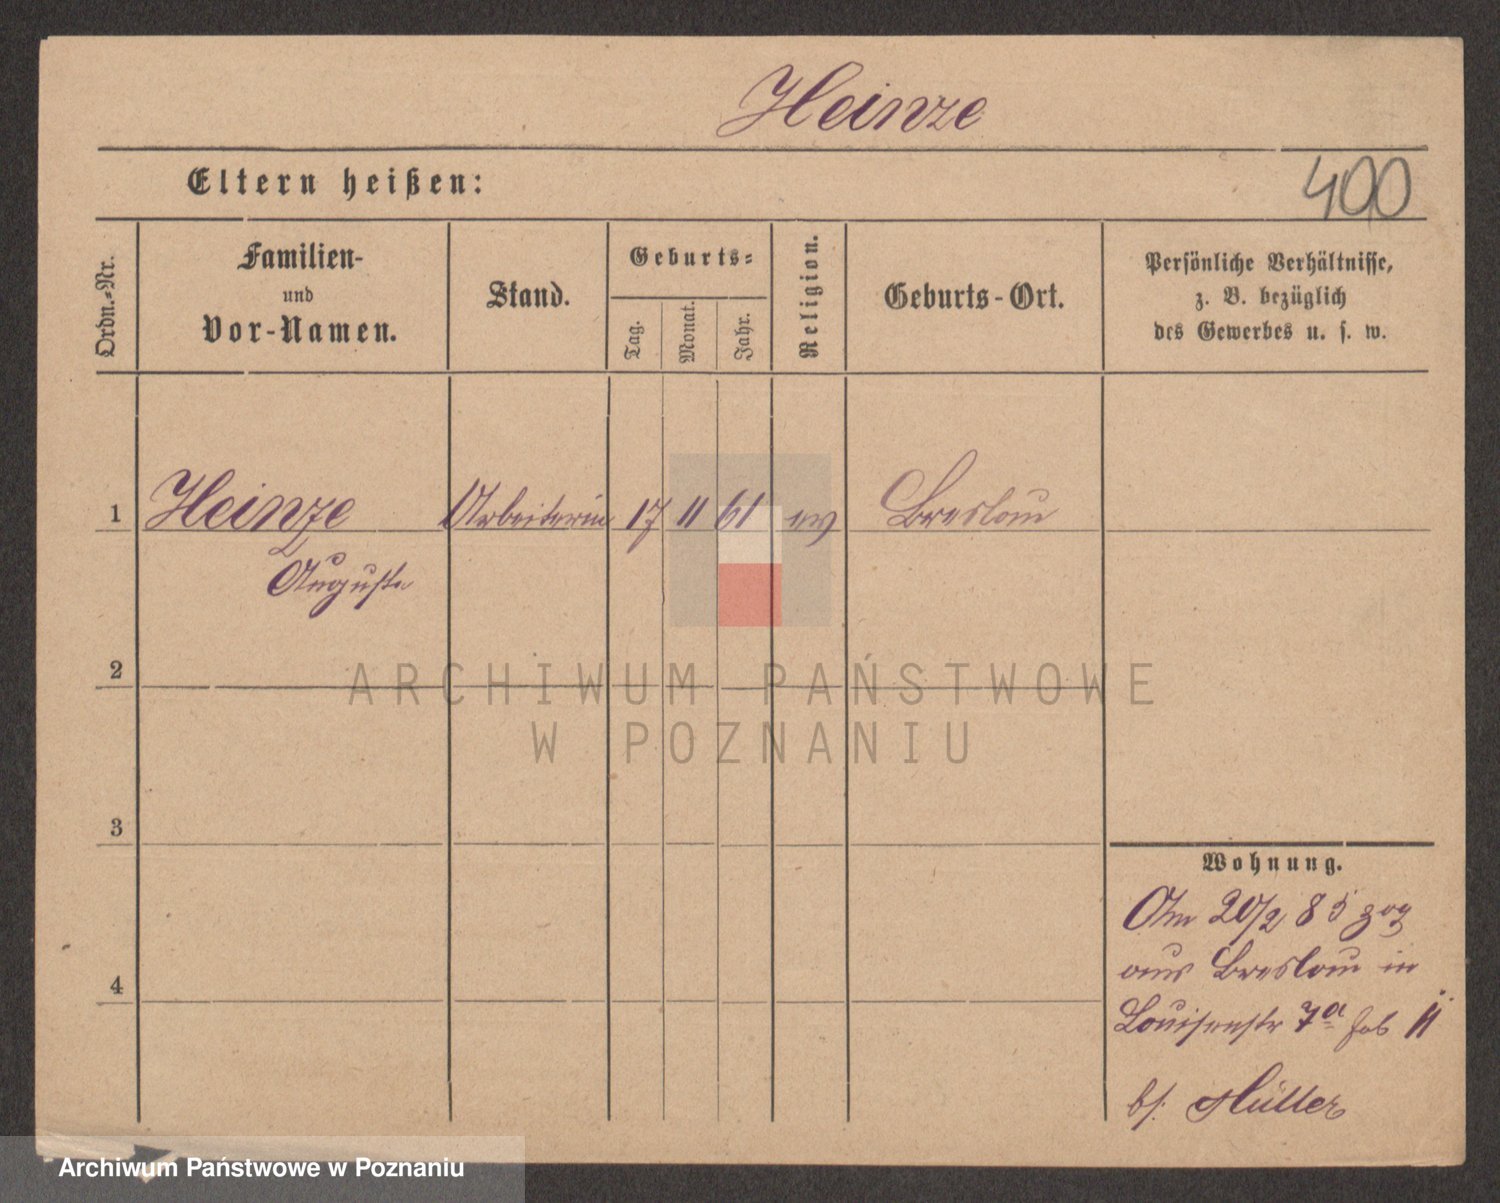 Heinze
Eltern heißen:
400
Ordn.-Nr.
Familien-
und
Vor-Namen.
Stand.
Geburts-
Tag.
Monat.
Jahr.
Religion.
Geburts-Ort.
Persönliche Verhältnisse,
z. B. bezüglich
des Gewerbes u. s. w.
1 Heinze Arbeiterin 17 11 61 ev Breslau
Auguste
2
ARCHIWUM PAŃSTWOWE
W POZNANIU
3
Wohnung.
Am 20/2 85 zog
aus Breslau in
4
Louisenstr 7a II
b/. Müller
Archiwum Państwowe w Poznaniu